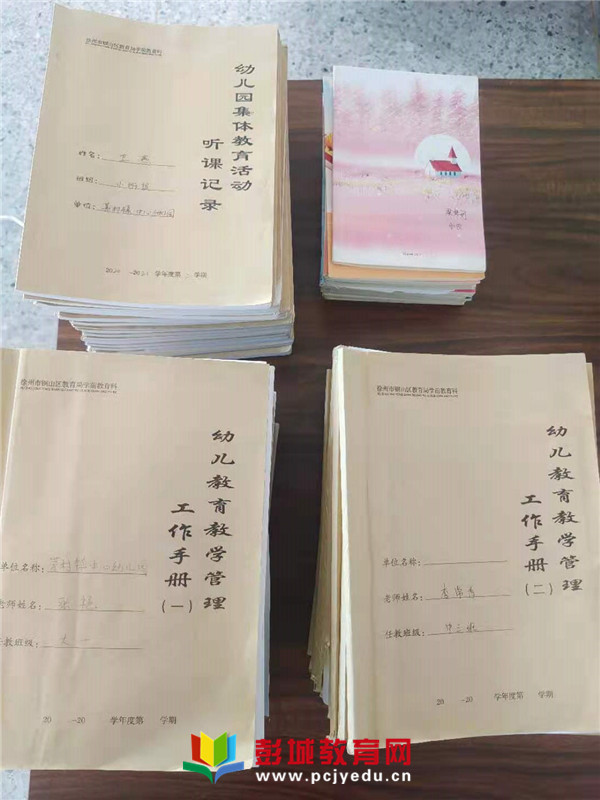 徐州市铜山区教育局学前教育科
幼儿园集体教育活动
听课记录
姓名:
班级:
单位:
学年度第 学期
徐州市铜山区教育局学前教育科
幼儿教育教学管理
工作手册
(一)
单位名称:
老师姓名:
任教班级: 大一
20 -20 学年度第 学期
徐州市铜山区教育局学前教育科
幼儿教育教学管理
工作手册
(二)
单位名称:
老师姓名:
任教班级:
20 -20 学年度第 学期
彭城教育网
www.pcjyedu.cn